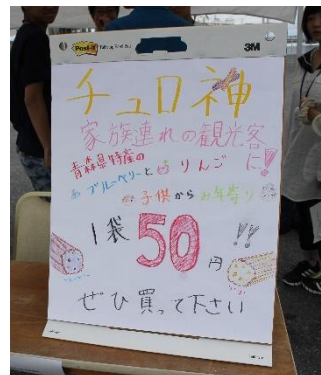 Post-it
3M
チュロ神
家族連れの観光客に!
青森県特産の
ブルーベリーとりんご
子供からお年寄り
1袋50円!!
ぜひ買って下さい